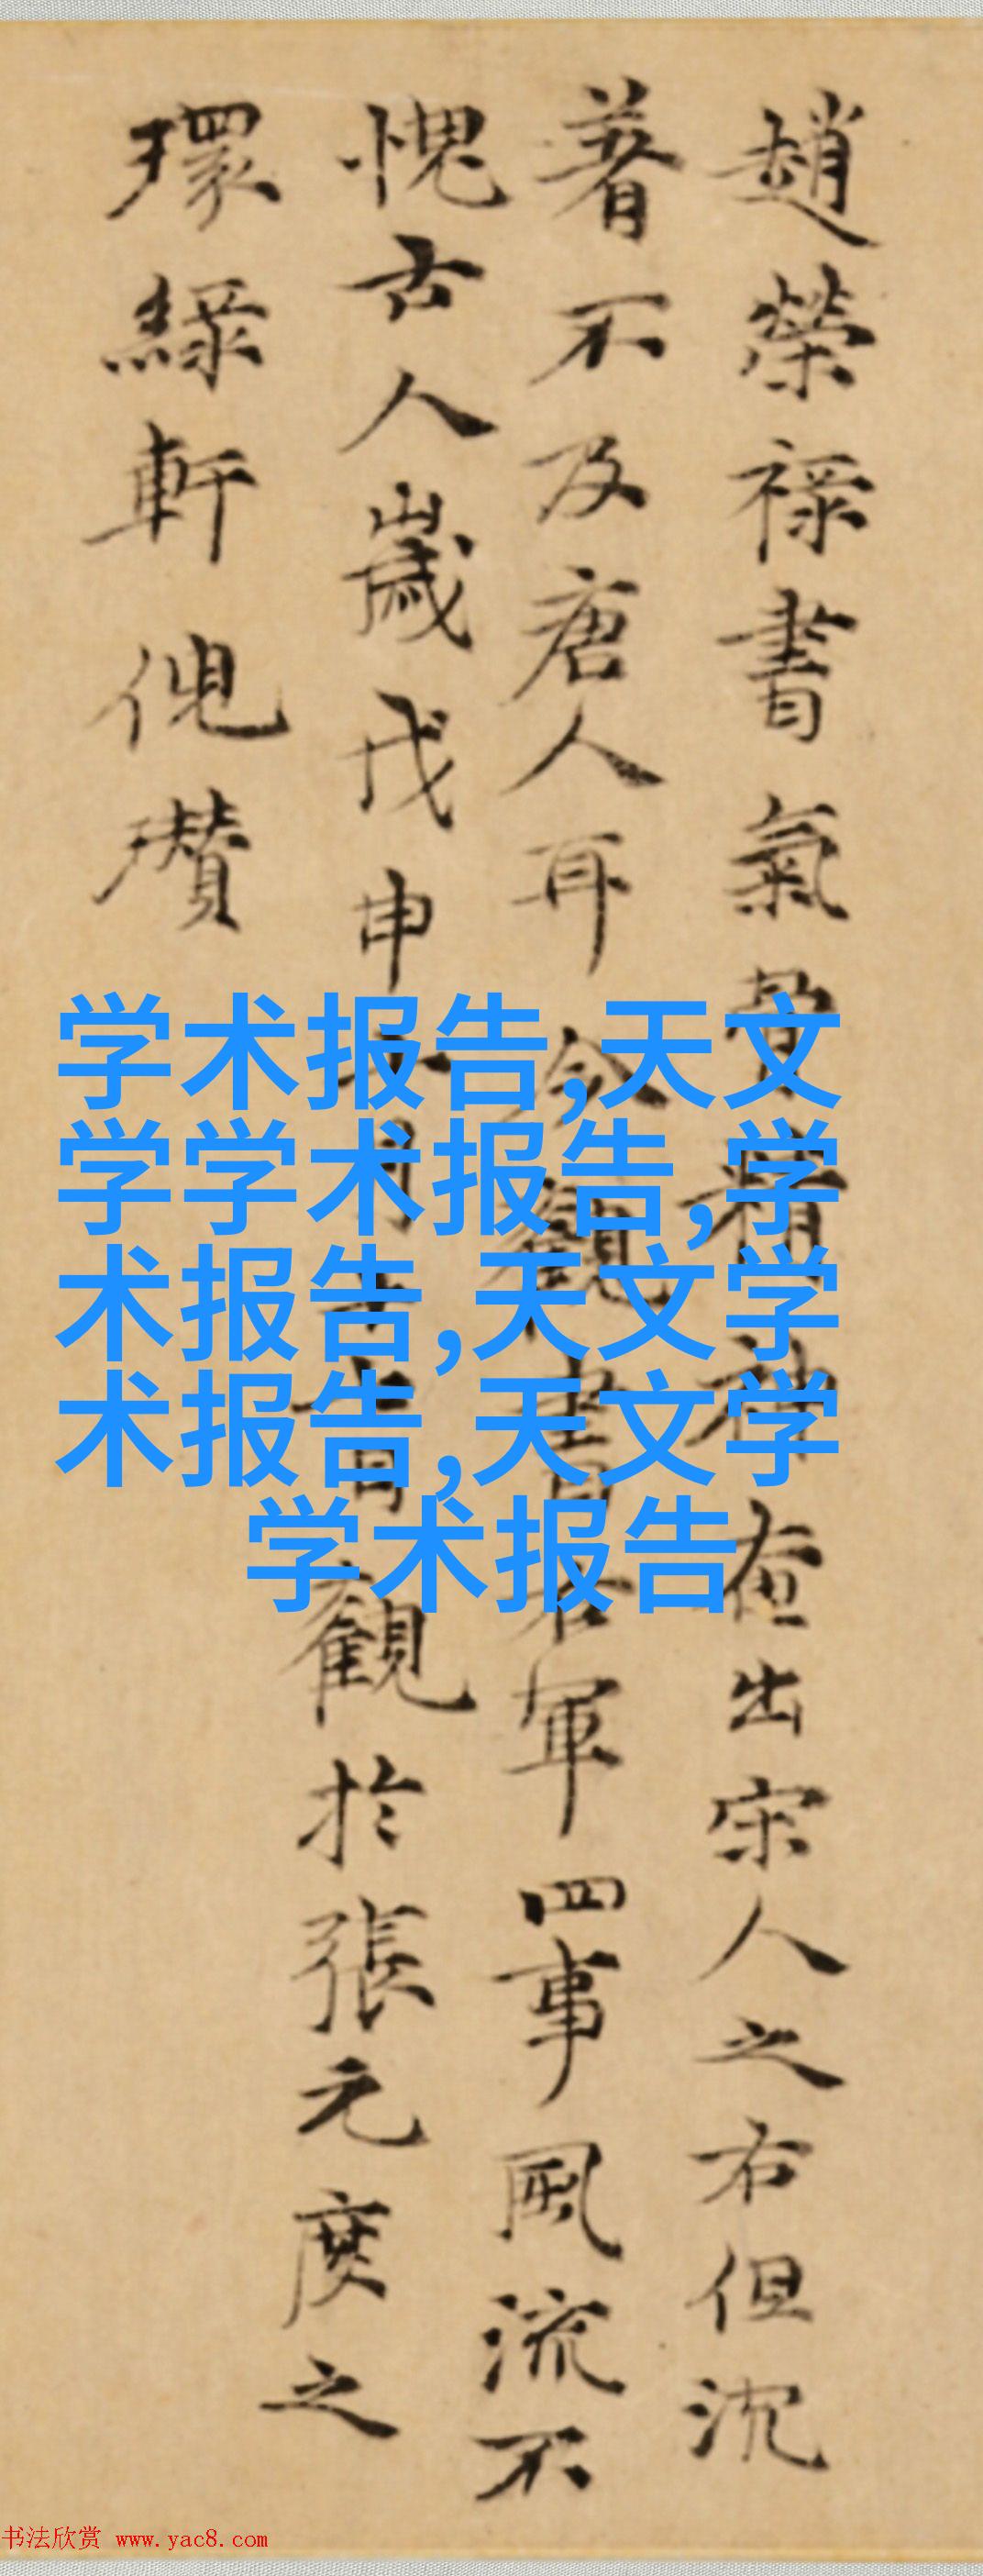 趙榮祿書氣骨精神出宋人之右但沉
著不及唐人耳今觀書右軍四事風流不
愧古人歲戊申月日觀於張元度之
環綠軒倪瓚
学术报告,天文
学学术报告,学
术报告,天文学
术报告,天文学
学术报告
书法欣赏 www.yac8.com